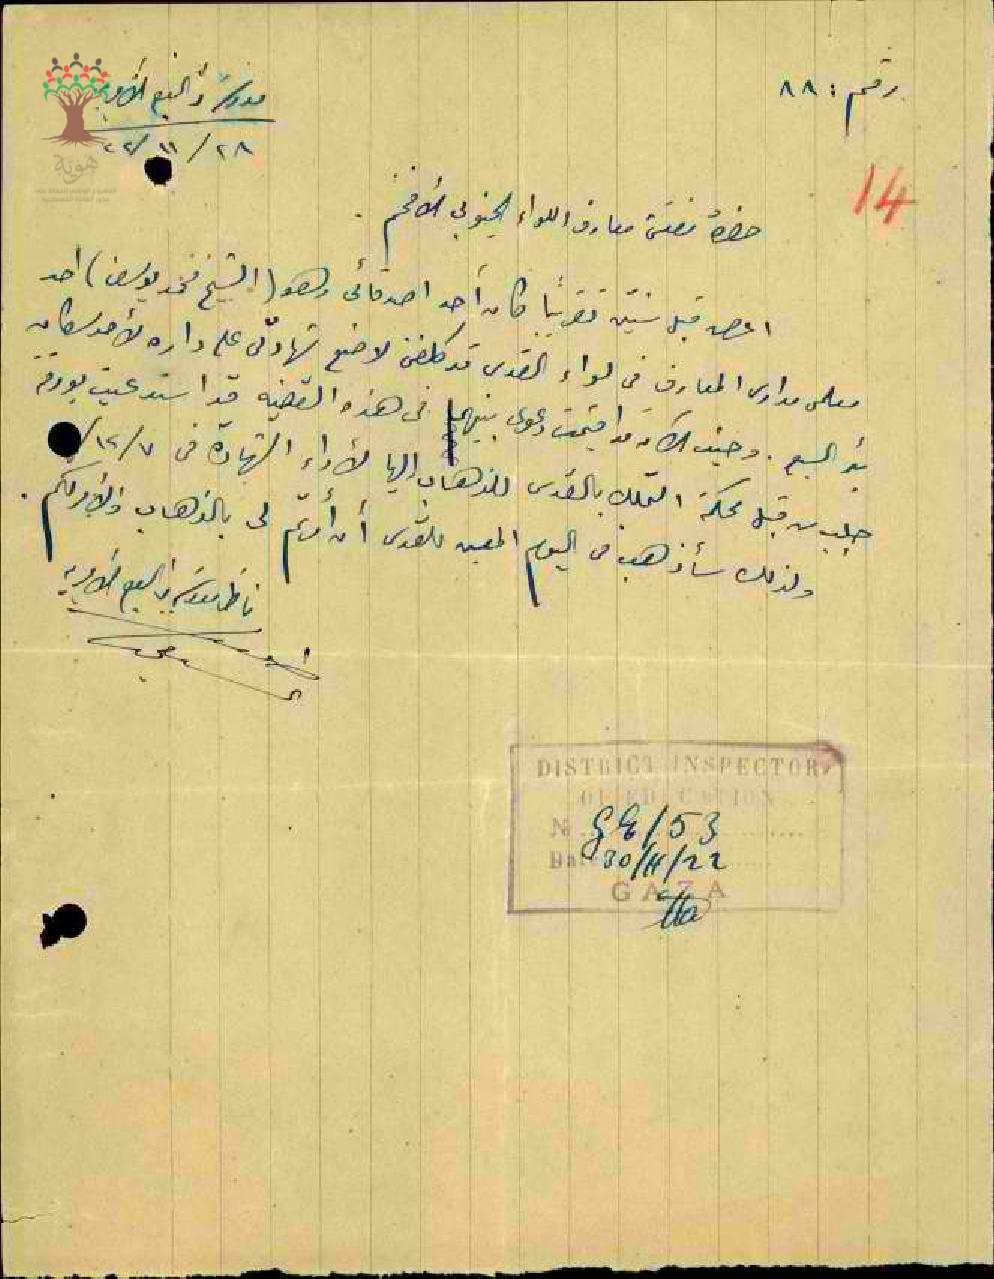 رقم : ٨٨
مدرسة بئر السبع الأميرية
٢٨/ ١١/ ٢٢
14
حضرة مفتش معارف اللواء الجنوبي الأفخم .
اعرض قبل سنتين تقريبًا كان أحد اصدقائي وهو ( الشيخ محمد يوسف ) احد
معلمي مدارس المعارف في لواء القدس قد كلفني لاضع شهادتي على داره لأحد سكان
بئر السبع . وحيث الآن قد اقيمت دعوى بينهما في هذه القضيه قد استدعيت بورقة
جلب من قبل محكمة التمليك بالقدس للذهاب اليها لأداء الشهادة في ٧/ ١٢/
ولذلك سأذهب في اليوم المعين للقدس أن أمرتم لي بالذهاب والأمر لكم .
ناظر مدرسة بئر السبع الأميرية
DISTRICT INSPECTOR
OF EDUCATION
No GE/53
Date 30/11/22
GAZA
هوية